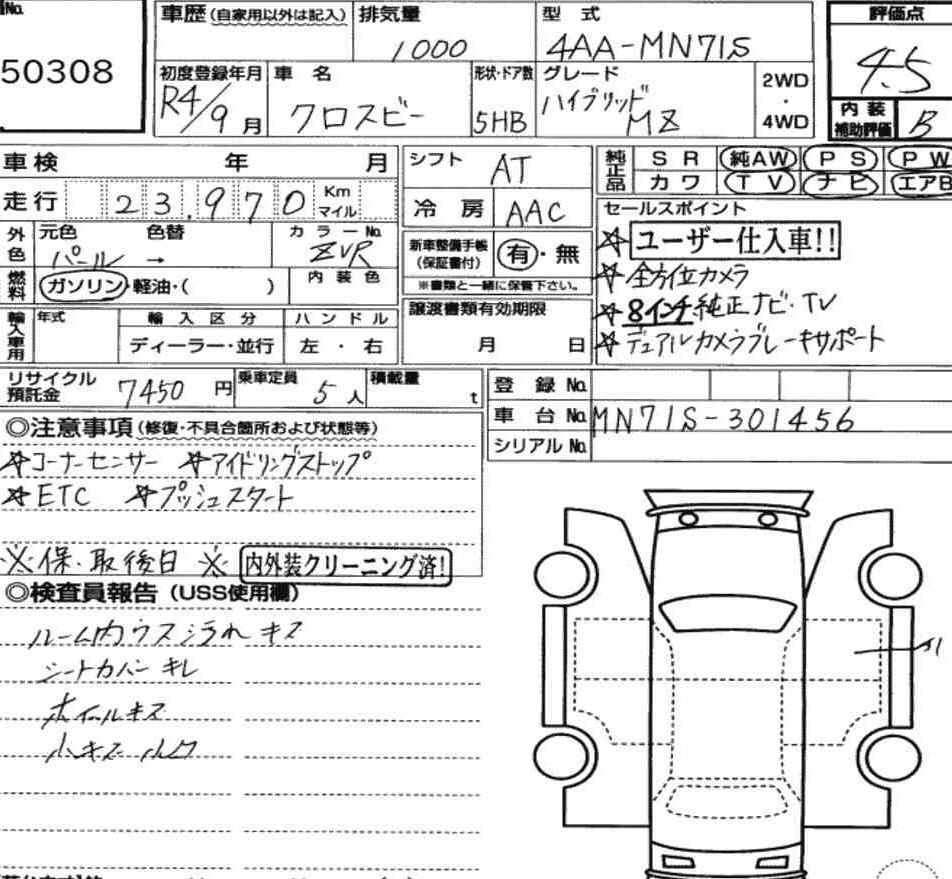 No.
50308
車歴 (自家用以外は記入)
排気量 1000
型式 4AA-MN71S
評価点 4.5
初度登録年月 R4/9月
車名 クロスビー
形状・ドア数 5HB
グレード ハイブリッド MZ
2WD・4WD
内装補助評価 B
車検 年 月
走行 23,970 Km マイル
シフト AT
冷房 AAC
純正品 SR 純AW PS PW
カワ TV ナビ エアB
外色 元色 パール → 色替
カラーNo. ZVR
燃料 ガソリン・軽油・( )
内装色
新車整備手帳(保証書付) 有・無
※書類と一緒に保管下さい。
セールスポイント
☆ユーザー仕入車!!
☆全方位カメラ
☆8インチ純正ナビ・TV
☆デュアルカメラブレーキサポート
輸入車用 年式 輸入区分 ハンドル
ディーラー・並行 左・右
譲渡書類有効期限
月 日
リサイクル預託金 7450円
乗車定員 5人
積載量 t
登録No.
車台No. MN71S-301456
シリアルNo.
◎注意事項(修復・不具合箇所および状態等)
☆コーナーセンサー ☆アイドリングストップ
☆ETC ☆プッシュスタート
※保・取後日※ 内外装クリーニング済!
◎検査員報告(USS使用欄)
ルーム内ウス汚れ キズ
シートカバー キレ
ホイールキズ
小キズ 小凹